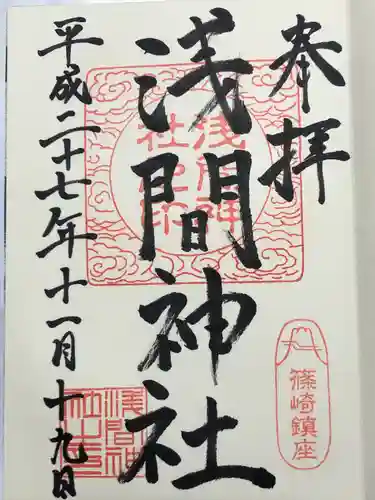 奉拝
篠崎鎮座
浅間神社
浅間神社之印
平成二十七年十一月十九日
浅間神社之印